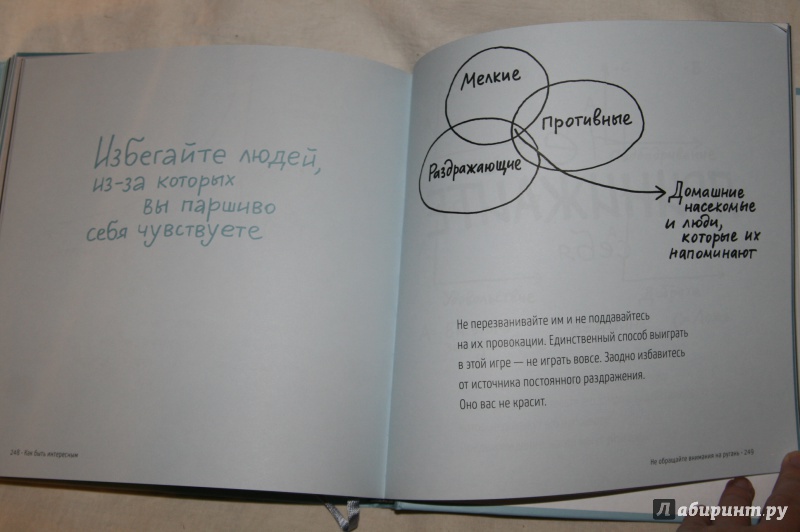 Избегайте людей,
из-за которых
вы паршиво
себя чувствуете
248 - Как быть интересным
Мелкие
Противные
Раздражающие
Домашние
насекомые
и люди,
которые их
напоминают
Не перезванивайте им и не поддавайтесь
на их провокации. Единственный способ выиграть
в этой игре — не играть вовсе. Заодно избавитесь
от источника постоянного раздражения.
Оно вас не красит.
Не обращайте внимания на ругань - 249
Лабиринт.ру